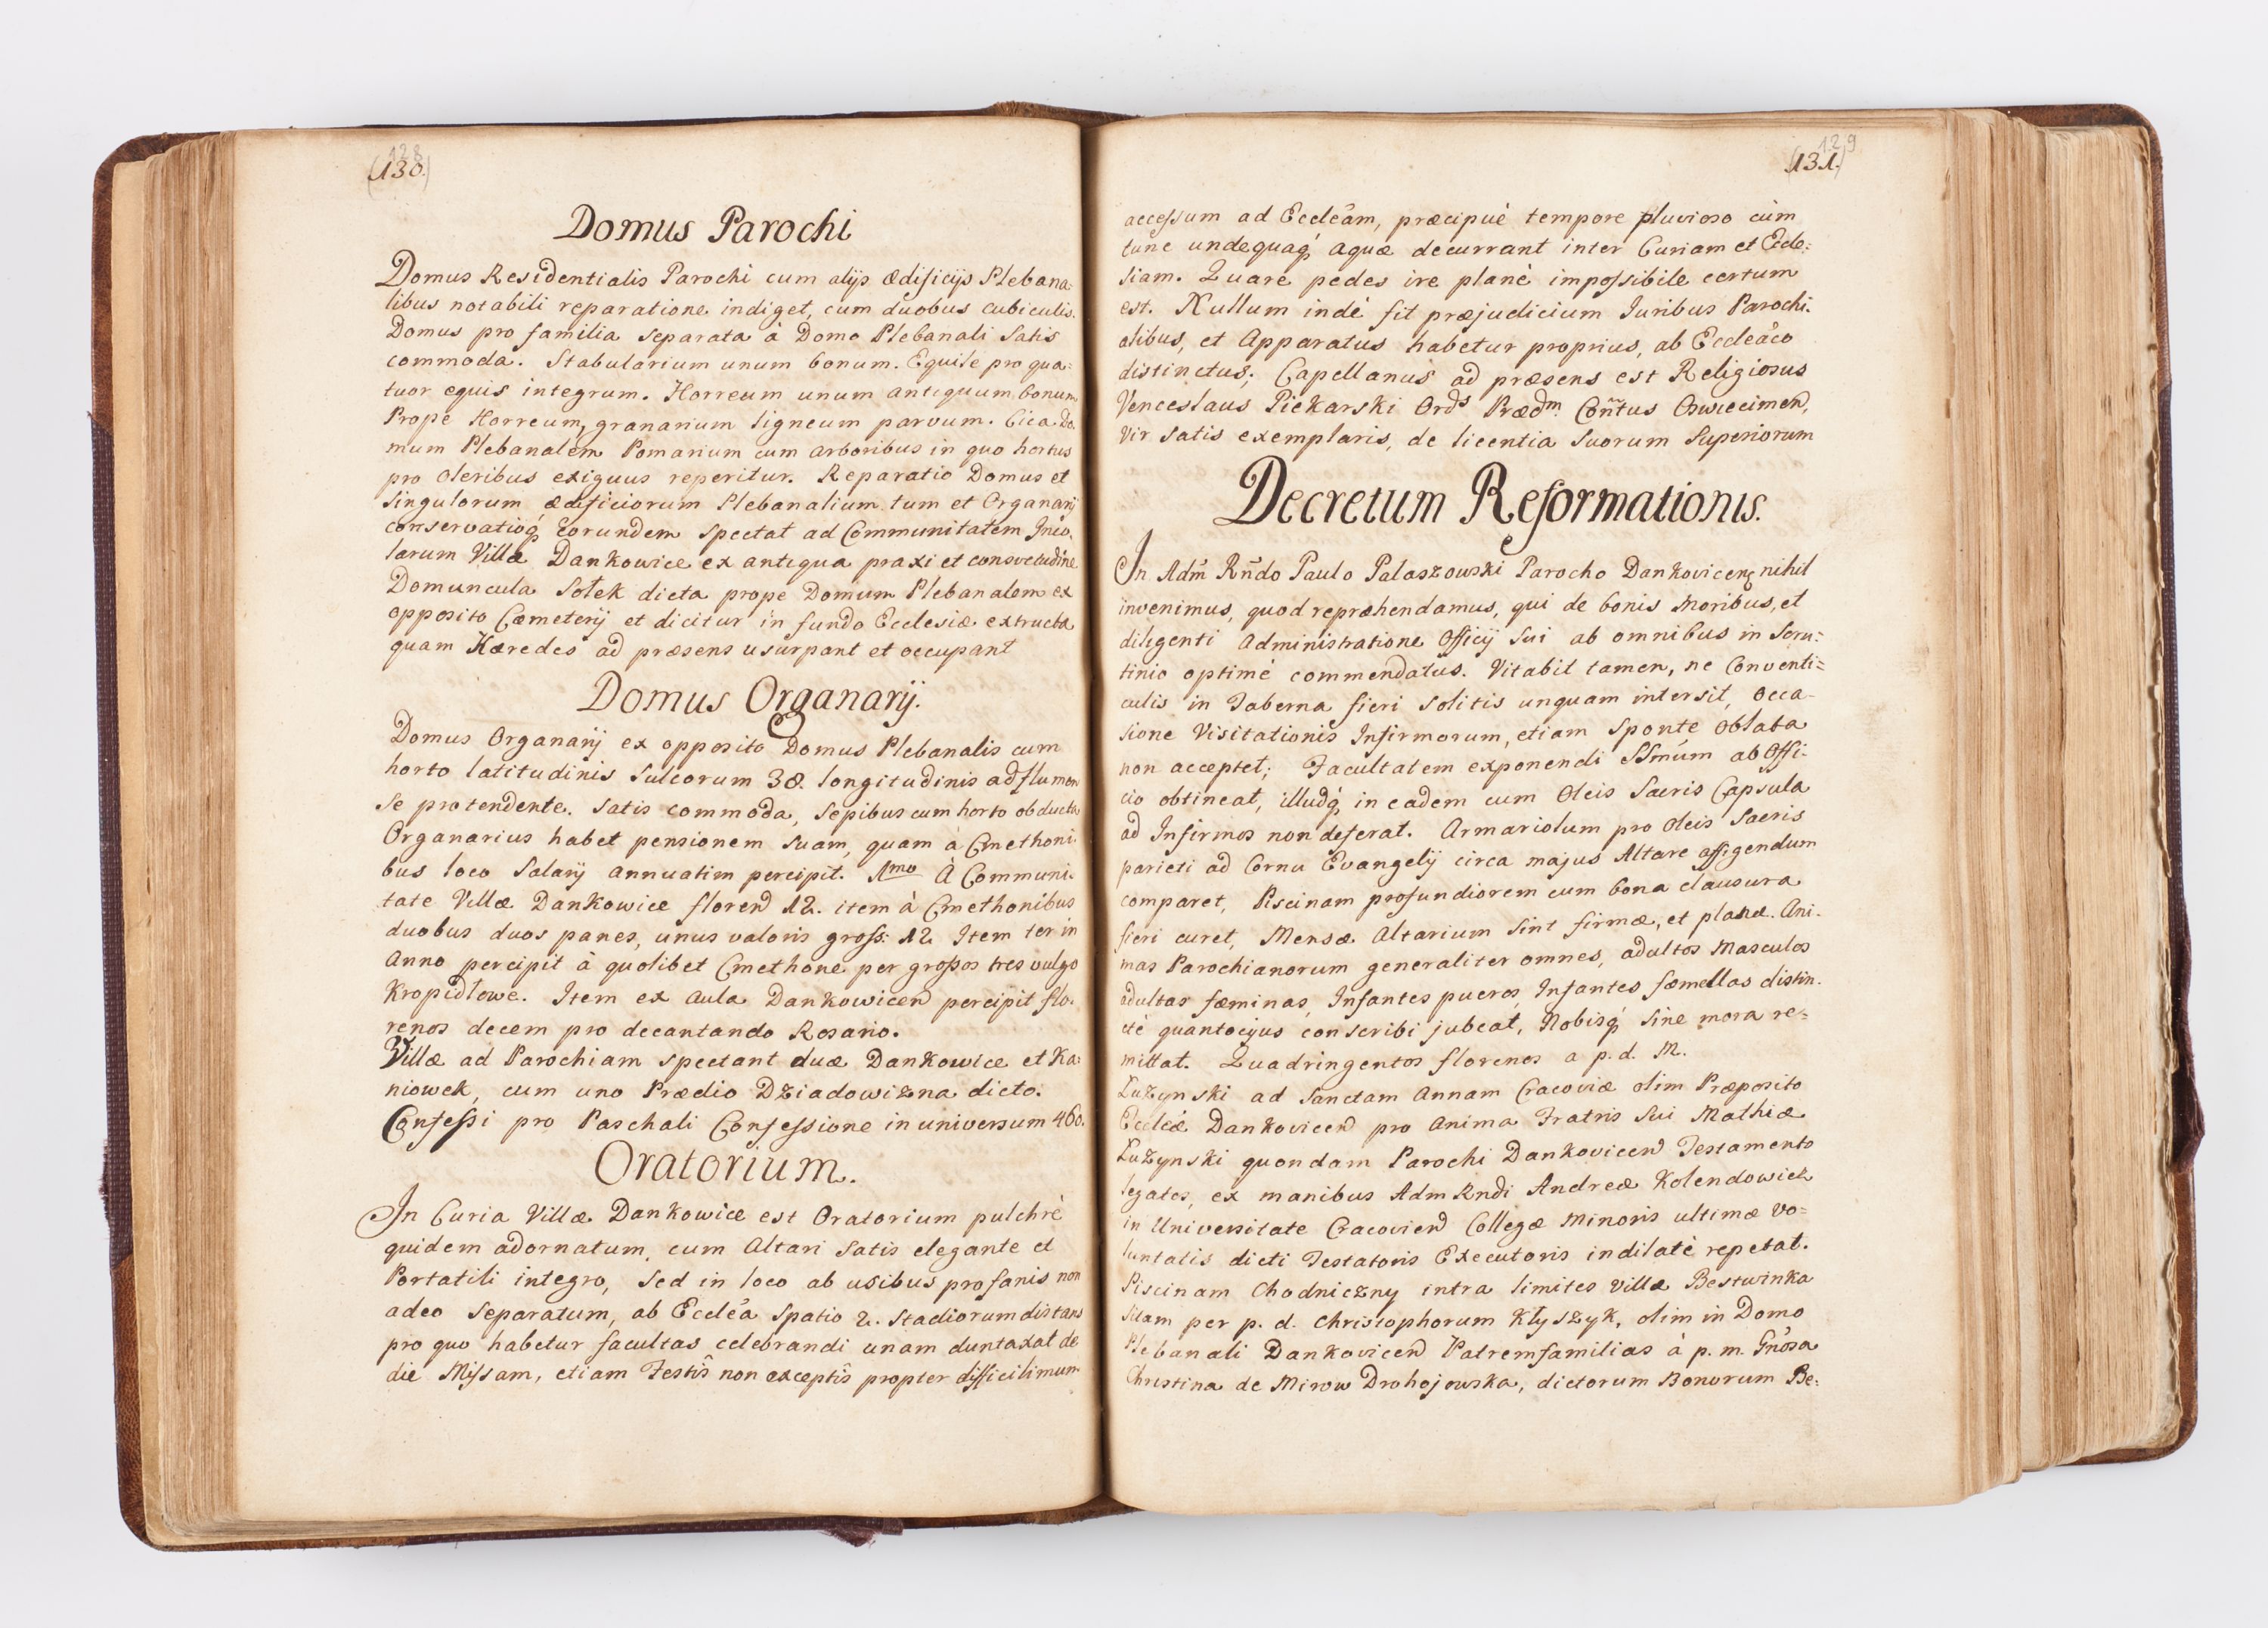 128
(130.)
Domus Parochi
Domus Residentialis Parochi cum alijs ædificijs Plebana-
libus notabili reparatione indiget, cum duobus cubiculis.
Domus pro familia separata à Domo Plebanali satis
commoda. Stabularium unum bonum. Equile pro qua-
tuor equis integrum. Horreum unum antiquum bonum
Prope Horreum, granarium ligneum parvum. Circa Do
mum Plebanalem Pomarium cum arboribus in quo hortus
pro oleribus exiguus reperitur. Reparatio Domus et
singulorum ædificiorum Plebanalium tum et Organarij
conservatioq́ Eorundem spectat ad Communitatem Inco,
larum Villæ Dankowice ex antiqua praxi et consvetudine
Domuncula Sołek dicta prope Domum Plebanalem ex
opposito Cæmeterij et dicitur in fundo Ecclesiæ extructa
quam Hæredes ad præsens usurpant et occupant
Domus Organarij.
Domus Organarij ex opposito Domus Plebanalis cum
horto latitudinis sulcorum 38. longitudinis ad flumen
se protendente. satis commoda, sepibus cum horto obducta
Organarius habet pensionem suam, quam à Cmethoni-
bus loco Salarij annuatim percipit. 1mo À Communi-
tate Villæ Dankowice floren 12. item à Cmethonibus
duobus duos panes, unus valoris gross: 12 Item ter in
Anno percipit à quolibet Cmethone per grossos tres vulgo
Kropidłowe. Item ex Aula Dankowicen percipit flo-
renos decem pro decantando Rosario.
Villæ ad Parochiam spectant duæ Dankowice et Ka-
niowek, cum uno Prædio Dziadowizna dicto.
Confessi pro Paschali Confessione in universum 460.
Oratorium.
In Curia Villæ Dankowice est Oratorium pulchrè
quidem adornatum, cum Altari satis elegante et
Portatili integro, sed in loco ab usibus profanis non
adeo separatum, ab Eccleā spatio 2. stadiorum distans
pro quo habetur facultas celebrandi unam duntaxat de
die Missam, etiam Festis non exceptis propter difficilimum
129
(131.)
accessum ad Eccleām, præcipuè tempore pluvioso cùm
tunc undequaq́ aquæ decurrant inter Curiam et Eccle-
siam. Quare pedes ire planè impossibile certum
est. Nullum indè fit præjudicium Iuribus Parochi-
alibus, et Apparatus habetur proprius, ab Eccleāco
distinctus; Capellanus ad præsens est Religiosus
Venceslaus Piekarski Ords Prædm. Coñtus Oswiecimen,
Vir satis exemplaris, de licentia suorum Superiorum
Decretum Reformationis.
In Adm̃ Rñdo Paulo Palaszowski Parocho Dankovicen nihil
invenimus, quod repræhendamus, qui de bonis moribus, et
diligenti Administratione Officij sui ab omnibus in scru-
tinio optimè commendatus. Vitabit tamen, ne Conventi-
culis in Taberna fieri solitis unquam intersit, occa-
sione Visitationis Infirmorum, etiam sponte oblata
non acceptet; Facultatem exponendi SSmum ab Offi-
cio obtineat, illudq́ in eadem cum Oleis Sacris Capsula
ad Infirmos non deferat. Armariolum pro Oleis Sacris
parieti ad Cornu Evangelij circa majus Altare affigendum
comparet, Piscinam profundiorem cum bona clausura
fieri curet, Mensæ Altarium sint firmæ, et planæ. Ani-
mas Parochianorum generaliter omnes, adultos Masculos
adultas fæminas, Infantes pueros, Infantes fæmellas distin-
ctè quantocijus conscribi jubeat, Nobisq́ sine mora re-
mittat. Quadringentos florenos a p. d. M.
Luzynski ad Sanctam Annam Cracoviæ olim Præposito
Eccleæ Dankovicen pro Anima Fratris sui Mathiæ
Luzynski quondam Parochi Dankovicen Testamento
legatos, ex manibus Adm Rndi Andreæ Kolendowicz
in Universitate Cracovien Collegæ Minoris ultimæ vo-
luntatis dicti Testatoris Executoris indilatè repetat.
Piscinam Chodniczny intra limites villæ Bestwinka
sitam per p. d. Christophorum Kłyszyk, olim in Domo
Plebanali Dankovicen Patremfamilias à p. m. Gnosa
Christina de Mirow Drohojowska, dictorum Bonorum Be-